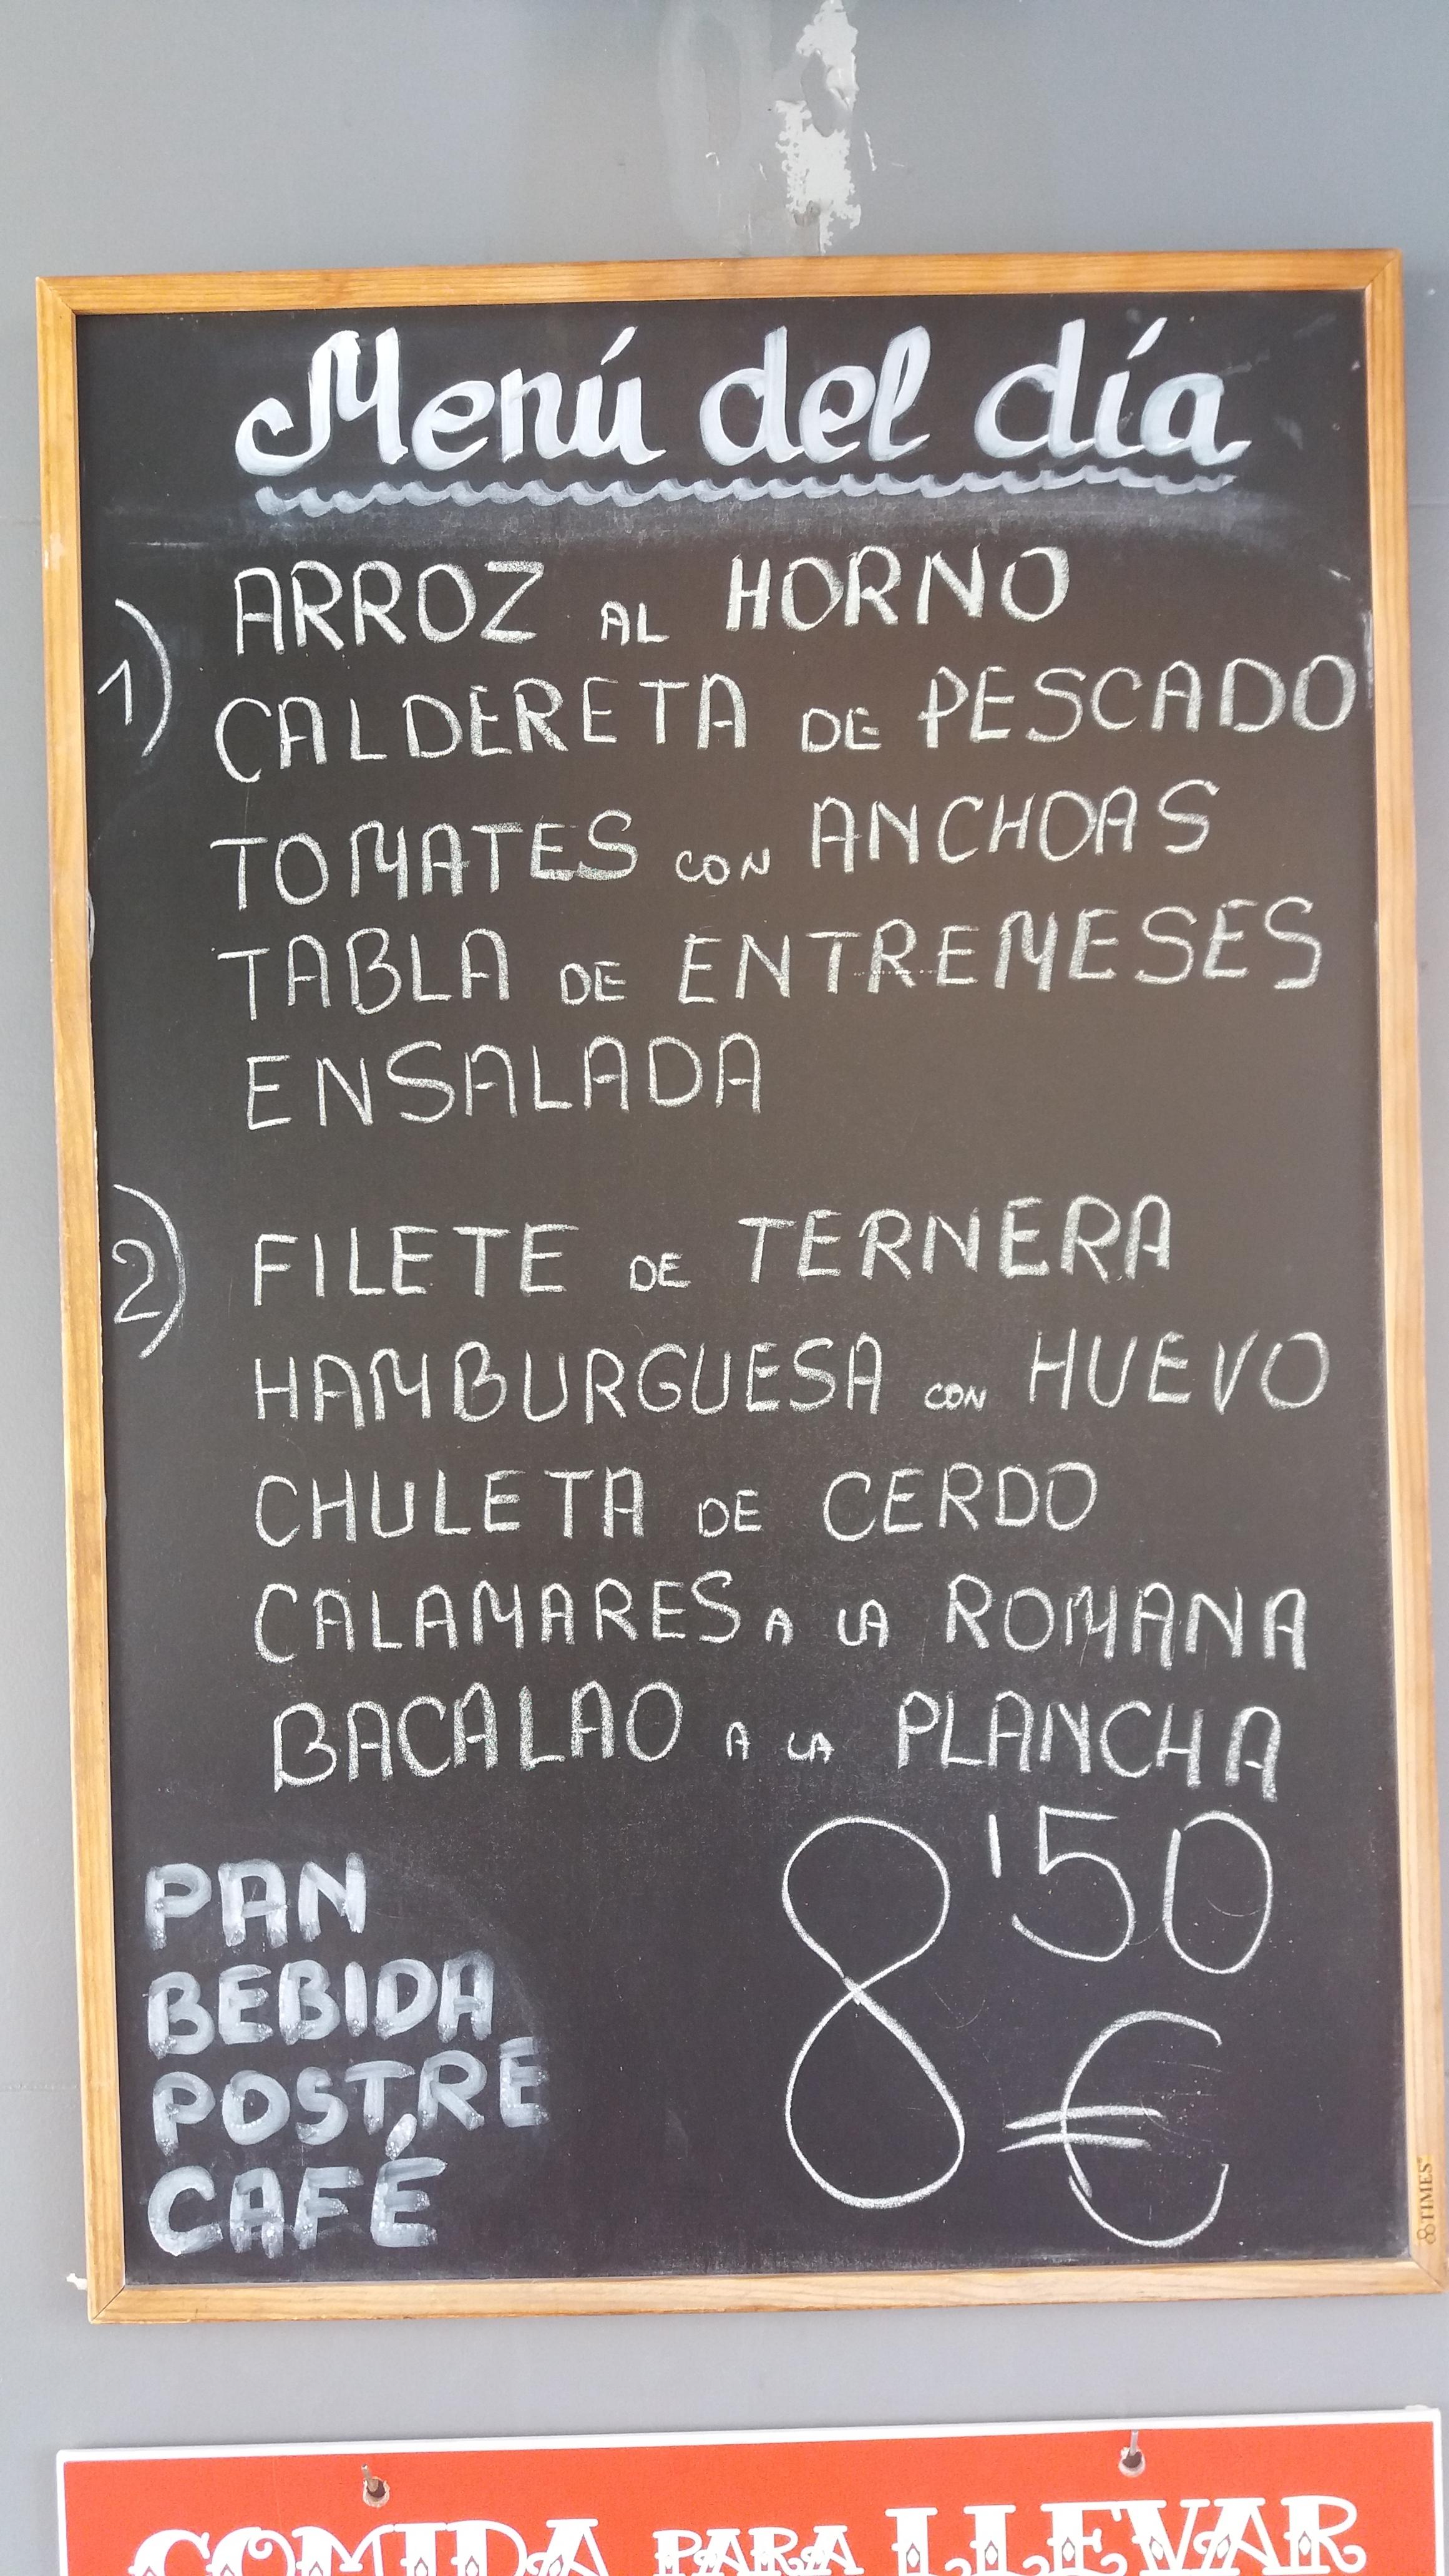 Menú del día
1) ARROZ AL HORNO
CALDERETA DE PESCADO
TOMATES CON ANCHOAS
TABLA DE ENTREMESES
ENSALADA
2) FILETE DE TERNERA
HAMBURGUESA CON HUEVO
CHULETA DE CERDO
CALAMARES A LA ROMANA
BACALAO A LA PLANCHA
PAN
BEBIDA
POSTRE
CAFÉ
8'50
€
TIMES
COMIDA PARA LLEVAR